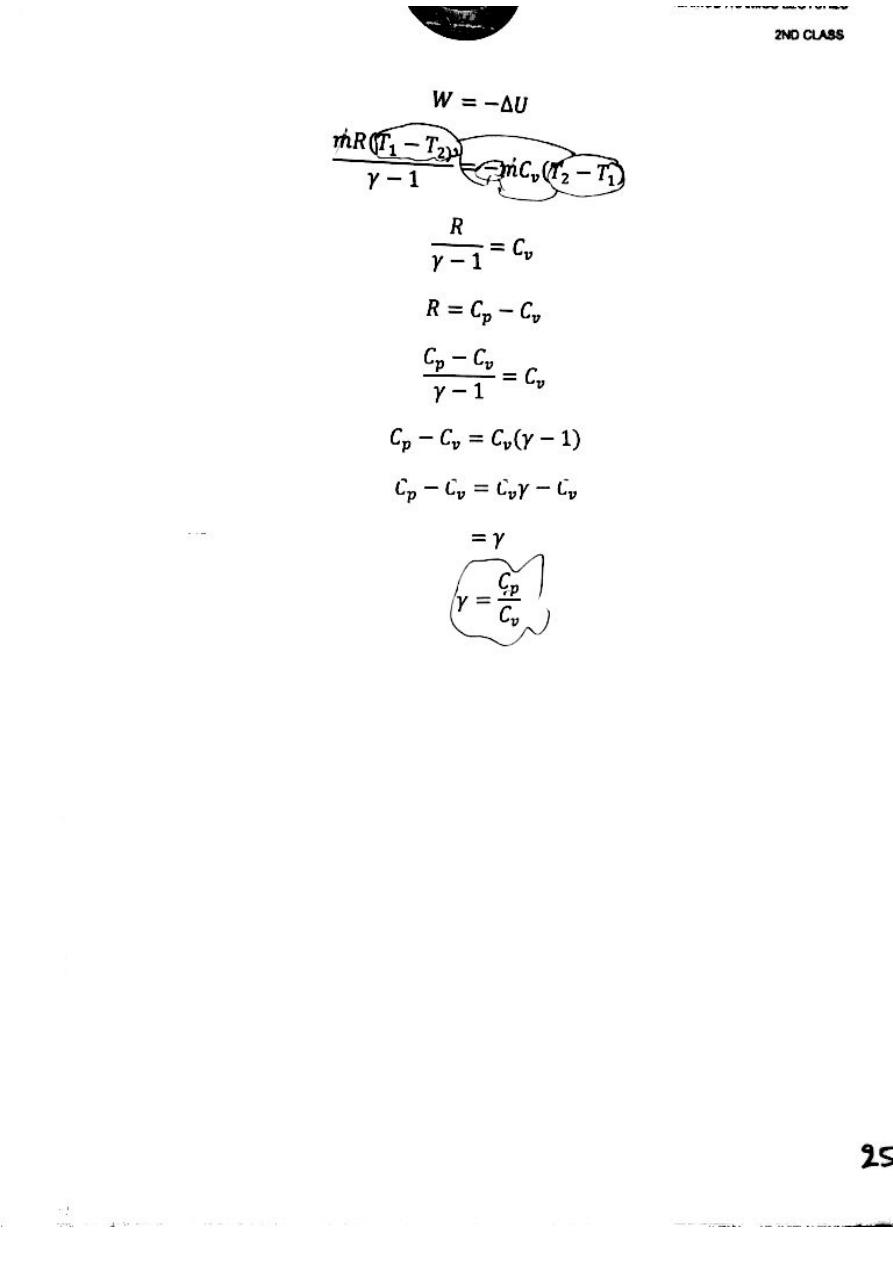 2ND CLASS
W = −ΔU
ṁR(T₁ − T₂) / γ − 1 = −ṁCᵥ(T₂ − T₁)
R / γ − 1 = Cᵥ
R = Cₚ − Cᵥ
Cₚ − Cᵥ / γ − 1 = Cᵥ
Cₚ − Cᵥ = Cᵥ(γ − 1)
Cₚ − Cᵥ = Cᵥγ − Cᵥ
= γ
γ = Cₚ / Cᵥ
25